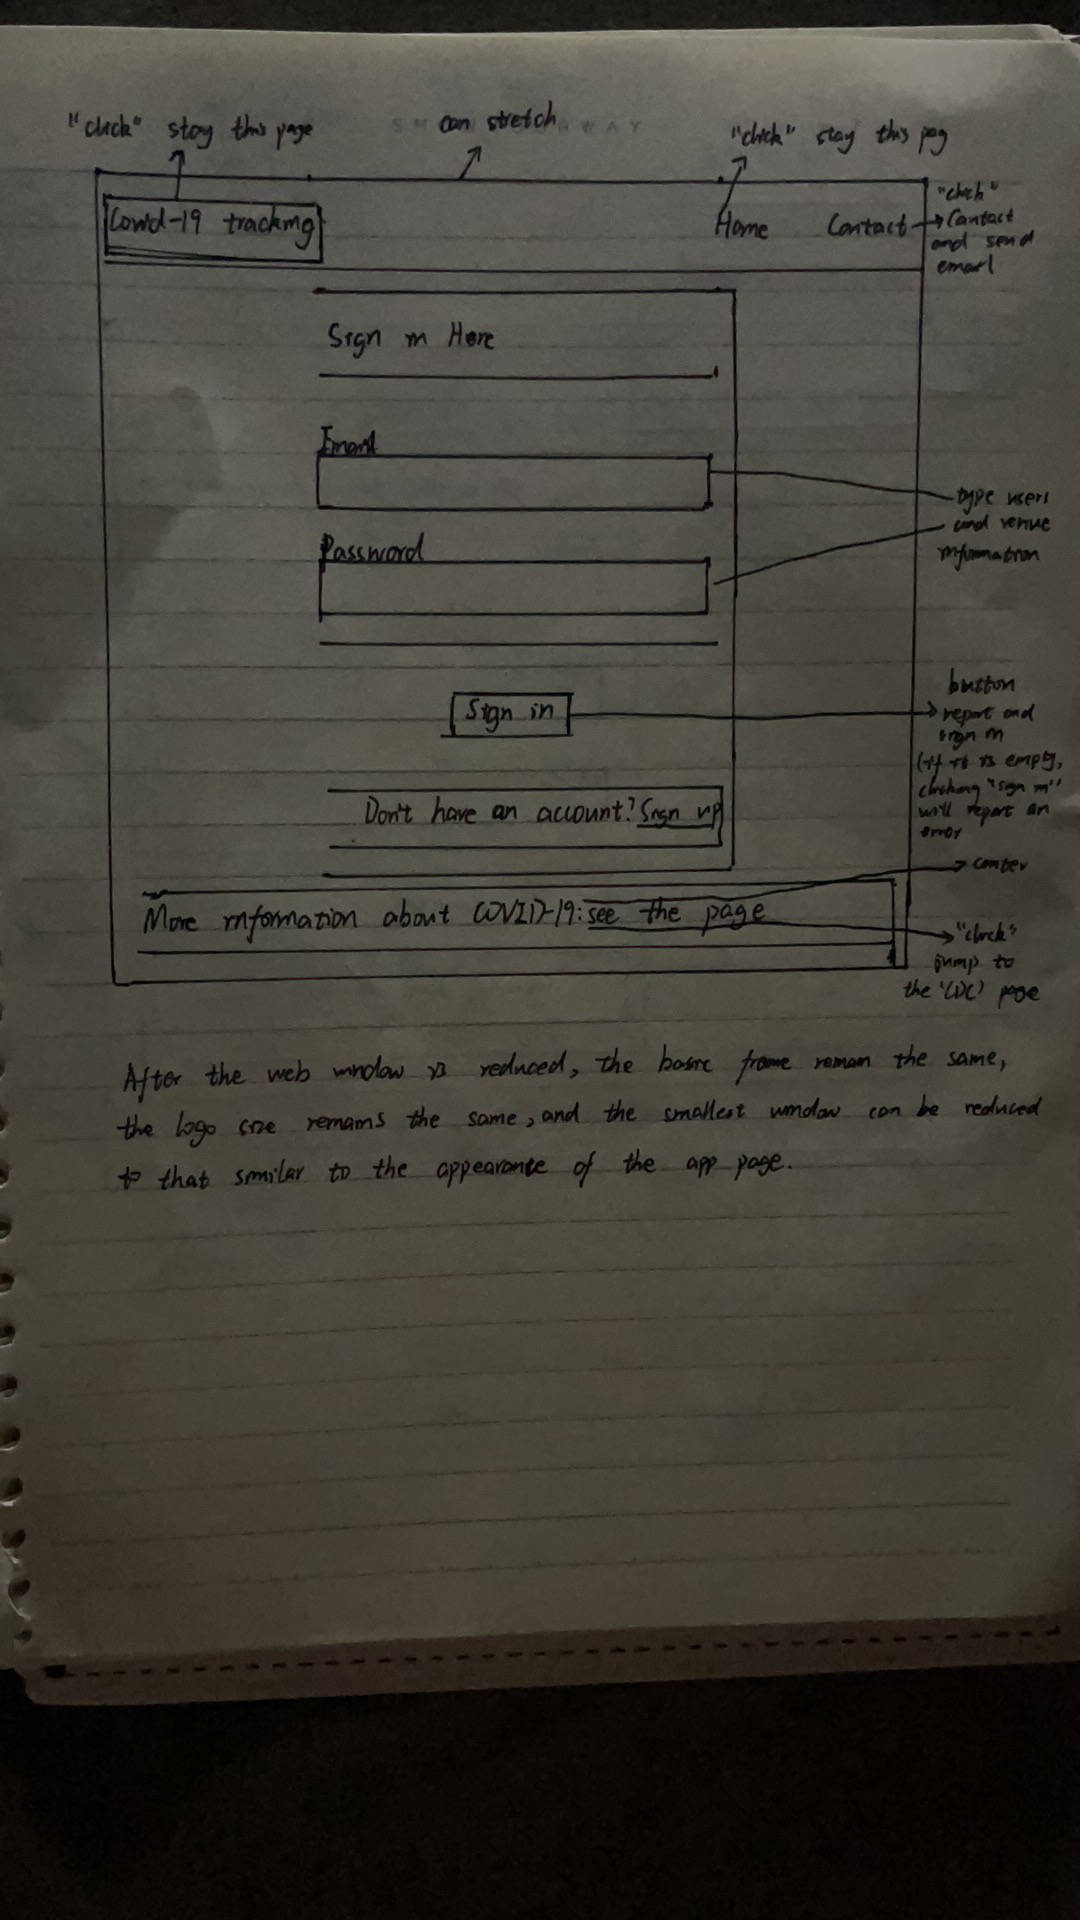 "click" stay this page
can stretch
"click" stay this pag
Covid-19 tracking
Home
Contact
"click"
Contact
and send
email
Sign in Here
Email
type users
and venue
information
Password
Sign in
button
report and
sign in
(if it is empty,
clicking "sign in"
will report an
error
Don't have an account? Sign up
center
More information about COVID-19: see the page
"click"
jump to
the 'CDC' page
After the web window is reduced, the basic frame remain the same,
the logo size remains the same, and the smallest window can be reduced
to that similar to the appearance of the app page.